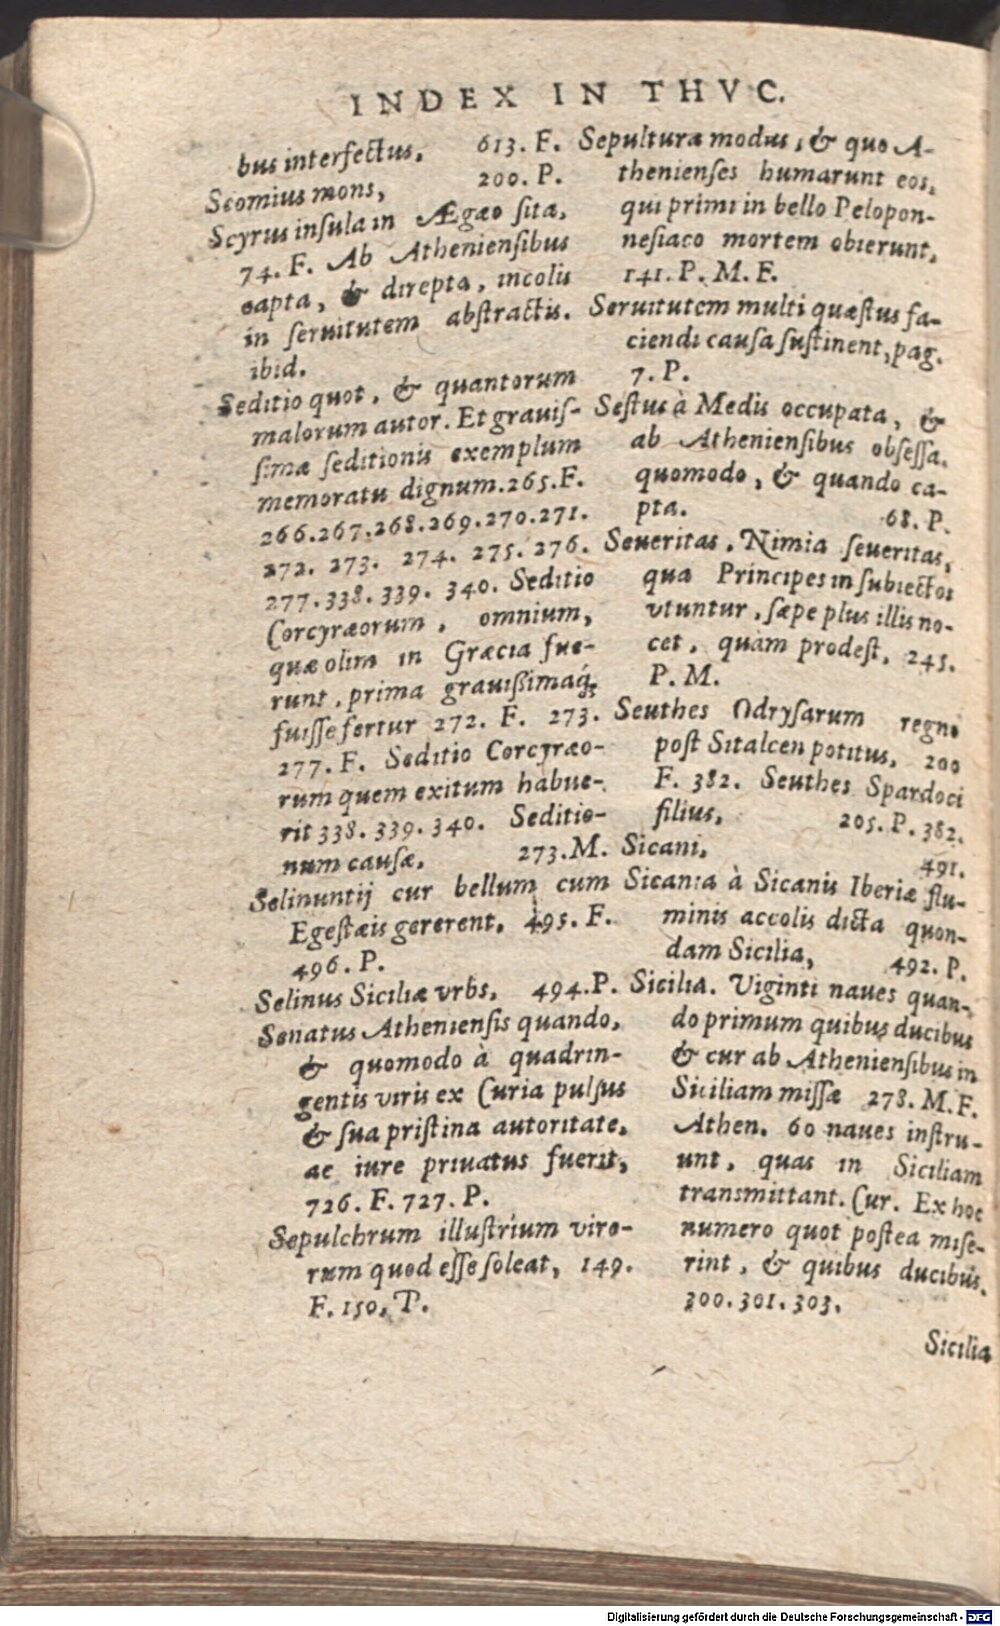 INDEX IN THVC.
bus interfectus, 613. F.
Scomius mons, 200. P.
Scyrus insula in Ægæo sita,
74. F. Ab Atheniensibus
capta, & direpta, incolis
in seruitutem abstractis.
ibid.
Seditio quot, & quantorum
malorum autor. Et grauis-
simæ seditionis exemplum
memoratu dignum. 265. F.
266. 267. 268. 269. 270. 271.
272. 273. 274. 275. 276.
277. 338. 339. 340. Seditio
Corcyræorum, omnium,
quæ olim in Græcia fue-
runt, prima grauißimaq́;
fuisse fertur 272. F. 273.
277. F. Seditio Corcyræo-
rum quem exitum habue-
rit 338. 339. 340. Seditio-
num causæ, 273. M.
Selinuntij cur bellum cum
Egestæis gererent, 495. F.
496. P.
Selinus Siciliæ vrbs, 494. P.
Senatus Atheniensis quando,
& quomodo à quadrin-
gentis viris ex Curia pulsus
& sua pristina autoritate,
ac iure priuatus fuerit,
726. F. 727. P.
Sepulchrum illustrium viro-
rum quod esse soleat, 149.
F. 150, P.
Sepulturæ modus, & quo A-
thenienses humarunt eos,
qui primi in bello Pelopon-
nesiaco mortem obierunt,
141. P. M. F.
Seruitutem multi quæstus fa-
ciendi causa sustinent, pag.
7. P.
Sestus à Medis occupata, &
ab Atheniensibus obsessa.
quomodo, & quando ca-
pta. 68. P.
Seueritas, Nimia seueritas,
qua Principes in subiectos
vtuntur, sæpe plus illis no-
cet, quàm prodest, 245.
P. M.
Seuthes Odrysarum regno
post Sitalcen potitus, 200
F. 382. Seuthes Spardoci
filius, 205. P. 382.
Sicani, 491.
Sicania à Sicanis Iberiæ flu-
minis accolis dicta quon-
dam Sicilia, 492. P.
Sicilia. Viginti naues quan-
do primum quibus ducibus
& cur ab Atheniensibus in
Siciliam missæ 278. M. F.
Athen. 60 naues instru-
unt, quas in Siciliam
transmittant. Cur. Ex hoc
numero quot postea mise-
rint, & quibus ducibus.
300. 301. 303.
Sicilia
Digitalisierung gefördert durch die Deutsche Forschungsgemeinschaft - DFG